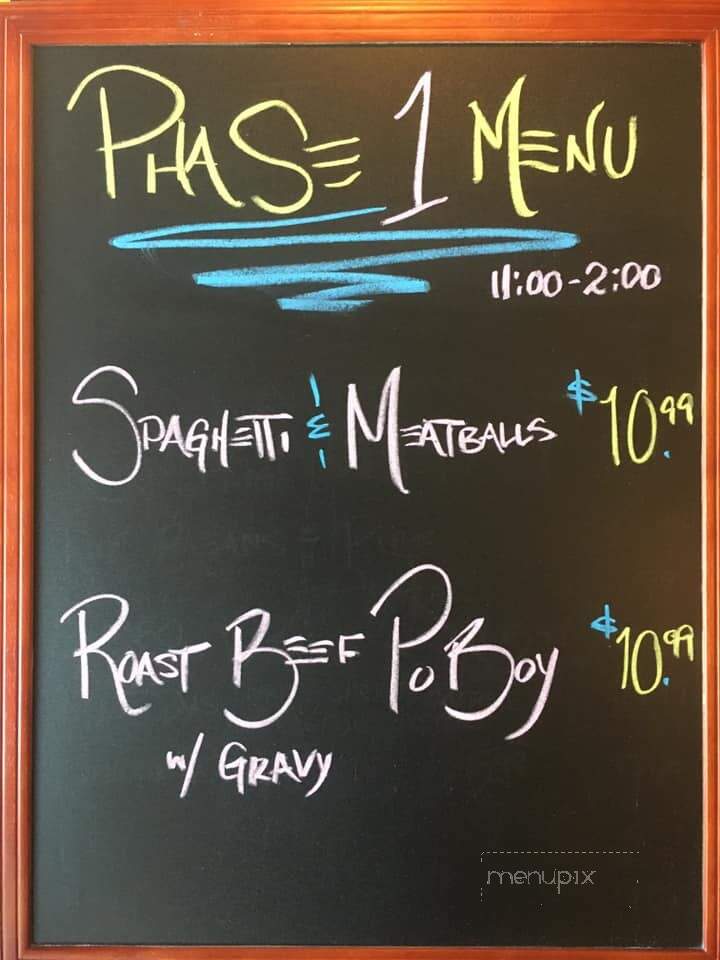 PHASE 1 MENU
11:00-2:00
SPAGHETTI & MEATBALLS $10.99
ROAST BEEF PO BOY $10.99
W/ GRAVY
menupix